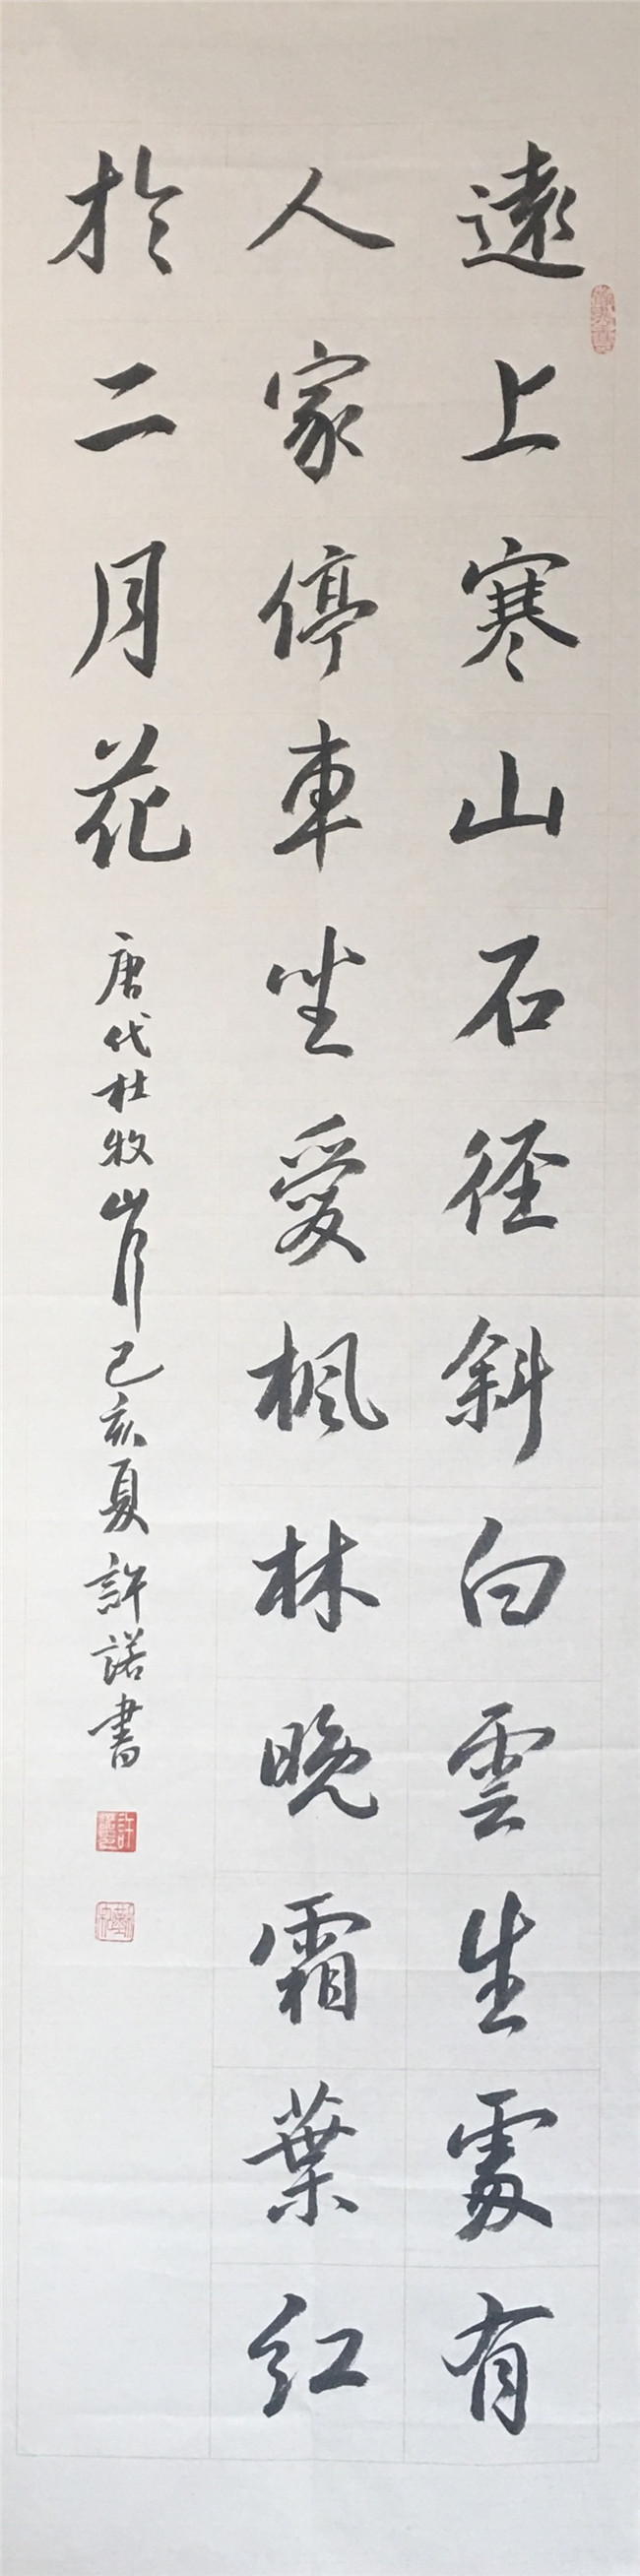 遠上寒山石径斜白雲生處有
人家停車坐愛楓林晚霜葉紅
於二月花
唐代杜牧山行己亥夏許諾書